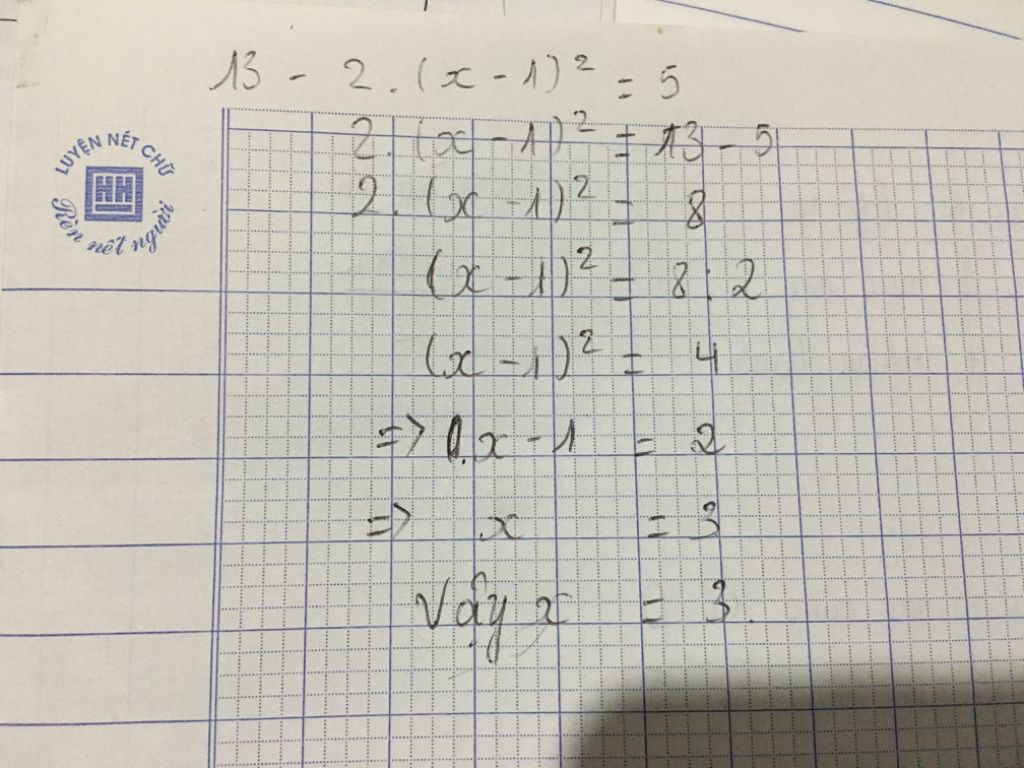 13 - 2.(x - 1)² = 5
2.(x - 1)² = 13 - 5
2.(x - 1)² = 8
(x - 1)² = 8 : 2
(x - 1)² = 4
=> x - 1 = 2
=> x = 3
Vậy x = 3.
LUYỆN NÉT CHỮ
HH
Rèn nết người